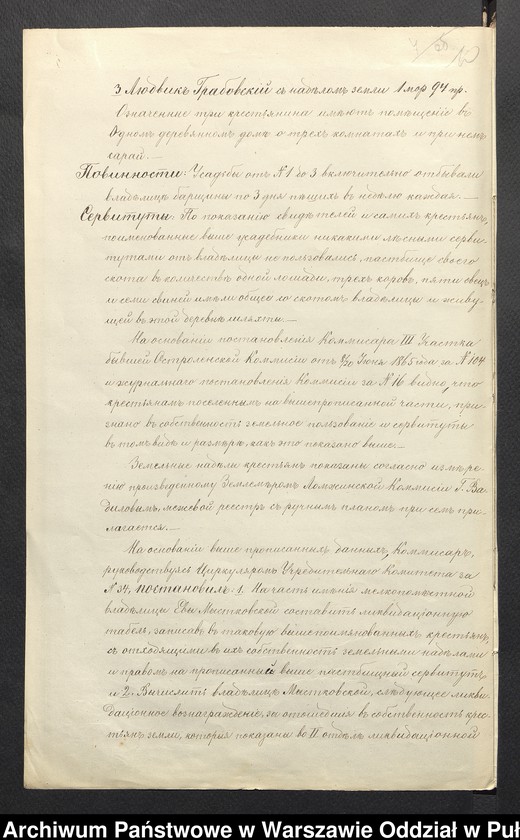 3 Людвикъ Грабовскій съ надѣломъ земли 1 мор 94 пр.
Означенные три крестьянина имѣютъ помѣщеніе въ
одномъ деревянномъ домѣ о трехъ комнатахъ и при немъ
сарай. —
Повинности: Усадьбы отъ № 1 до 3 включительно отбывали
владѣлицѣ барщины по 3 дня пѣшихъ въ недѣлю каждая. —
Сервитуты: По показанію свидѣтелей и самихъ крестьянъ,
поименованные выше усадебники никакими лѣсными серви-
тутами отъ владѣлицы не пользовались, пастбище своего
скота въ количествѣ одной лошади, трехъ коровъ, пяти овецъ
и семи свиней имѣли общее со скотомъ владѣлицы и живу-
щей въ этой деревнѣ шляхты. —
На основаніи постановленія Коммисара III Участка
бывшей Остроленской Коммисіи отъ 8/20 Іюня 1865 года за № 104
и журнальнаго постановленія Коммисіи за № 16 видно, что
крестьянамъ поселеннымъ на вышепрописанной части, при-
знано въ собственность земельное пользованіе и сервитуты
въ томъ видѣ и размѣрѣ, какъ это показано выше. —
Земельные надѣлы крестьянъ показаны согласно измѣре-
нію произведенному Землемѣромъ Ломжинской Коммисіи Г. Ва-
диловымъ, межевой реестръ съ ручнымъ планомъ при семъ при-
лагается. —
На основаніи выше прописанныхъ данныхъ, Коммисаръ,
руководствуясь Циркуляромъ Учредительнаго Комитета за
№ 34, постановилъ: 1. На часть имѣнія мелкопомѣстной
владѣлицы Евы Мыстковской составить ликвидаціонную
табель, записавъ въ таковую вышепоименованныхъ крестьянъ,
съ отходящими въ ихъ собственность земельными надѣлами
и правомъ на прописанный выше пастбищный сервитутъ,
и 2. Вычислить владѣлицѣ Мыстковской, слѣдующее ликви-
даціонное вознагражденіе, за отошедшія въ собственность крес-
тьянъ земли, которыя показаны во II отдѣлѣ ликвидаціонной
Archiwum Państwowe w Warszawie Oddział w Puł